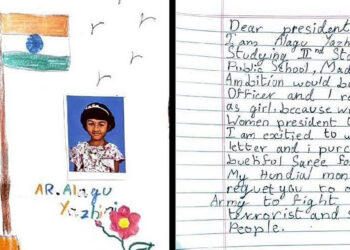 AR. Alagu
Yazhini
Dear president
I am Alagu Yazh
Studying IInd Sta
Public School, Mad
Ambition would b
Officer and I r
as girl. because w
Women president O
I am exitied to w
letter and i purc
buekful Saree fo
My Hundial mon
reguet you to
Army to fight
terrorist and s
People.